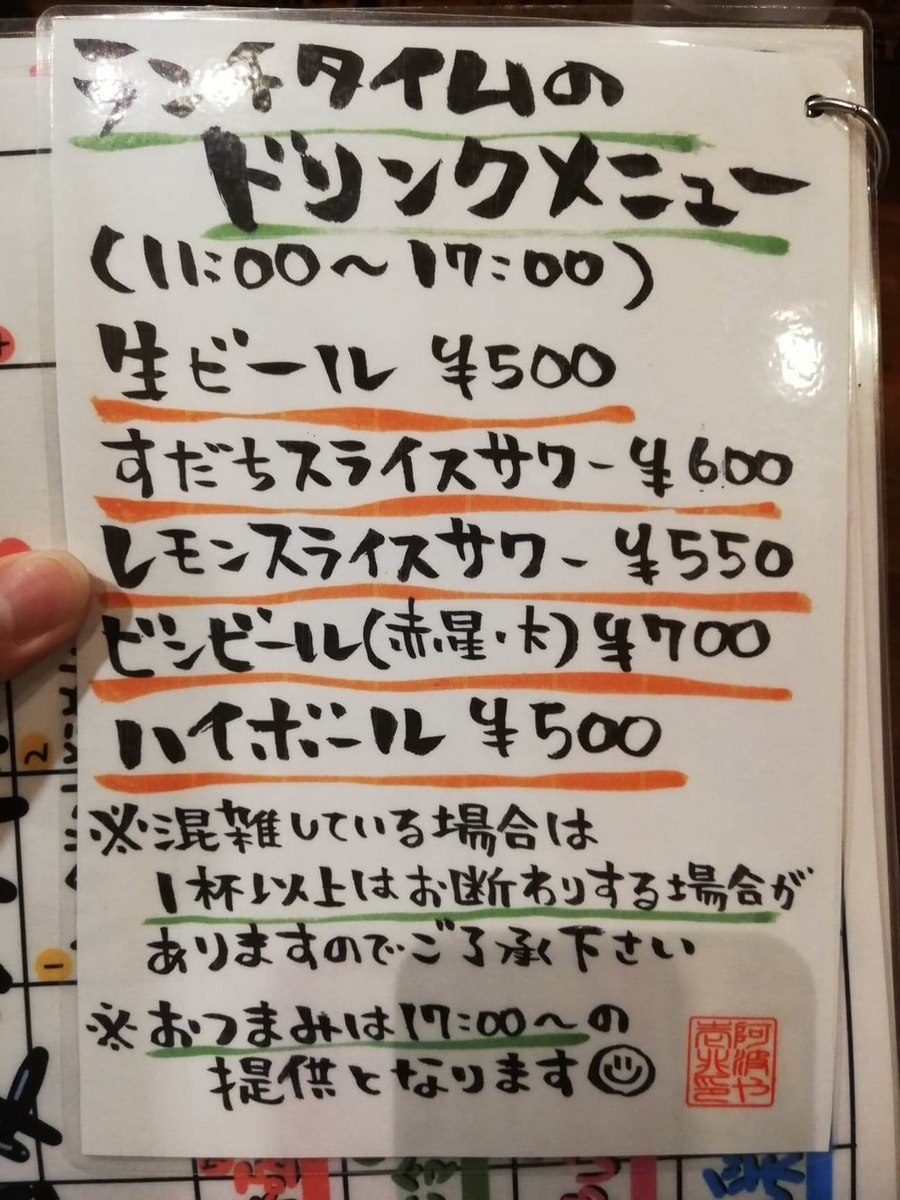 ランチタイムの
ドリンクメニュー
(11:00〜17:00)
生ビール ¥500
すだちスライスサワー ¥600
レモンスライスサワー ¥550
ビンビール(赤星・大) ¥700
ハイボール ¥500
※混雑している場合は
1杯以上はお断わりする場合が
ありますのでご了承下さい
※おつまみは17:00〜の
提供となります
阿波や
2
1